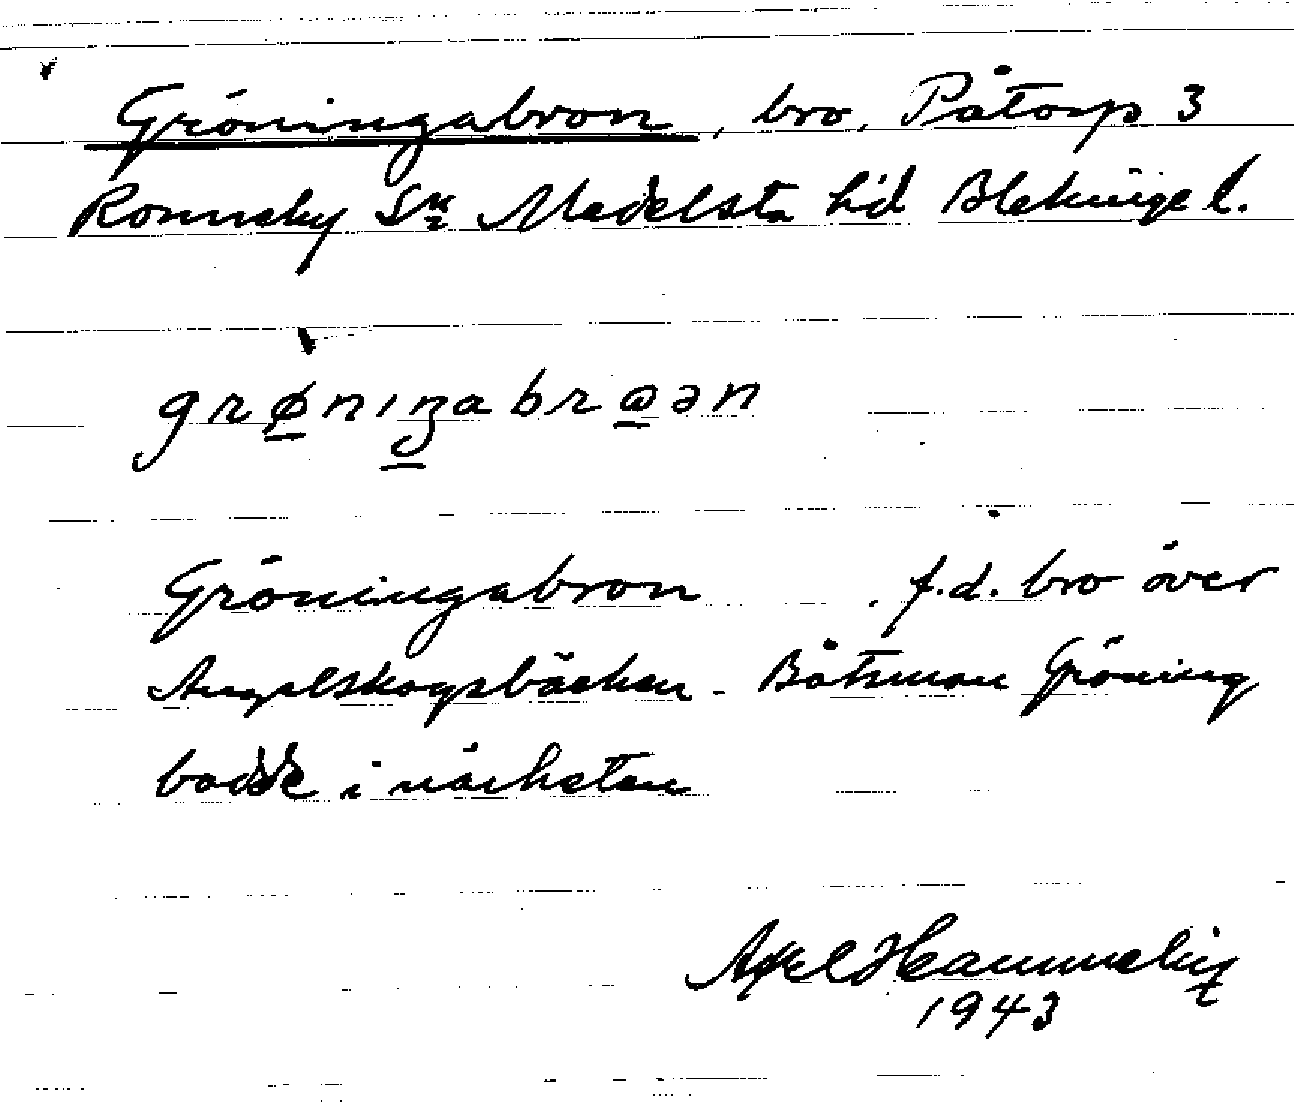 Gröningabron, bro, Påtorp 3
Ronneby Sn Medelsta hd Blekinge l.
grøniŋabrɷən
Gröningabron . f.d. bro över
Angelskogsbäcken - Båtsman Gröning
bodde i närheten
Axel
1943